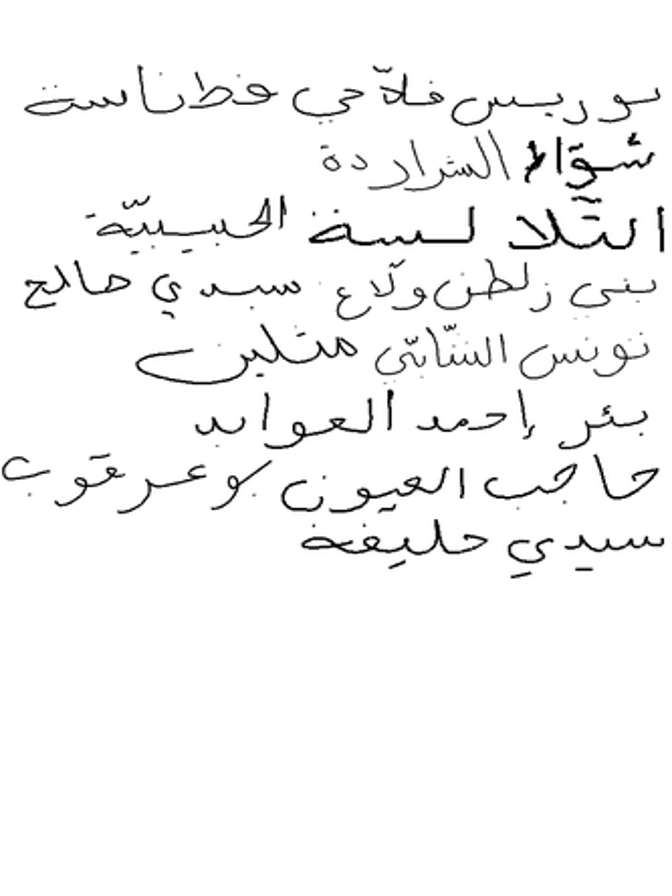 بوريس فلاّحي فطناسة
شوّاط الشراردة
التّلالسة الحبيبيّة
بني زلطن ولاّع سيدي صالح
تونس الشنّاتّي متلين
بئر إحمد العوابد
حاجب العيون بوعرقوب
سيدي خليفة